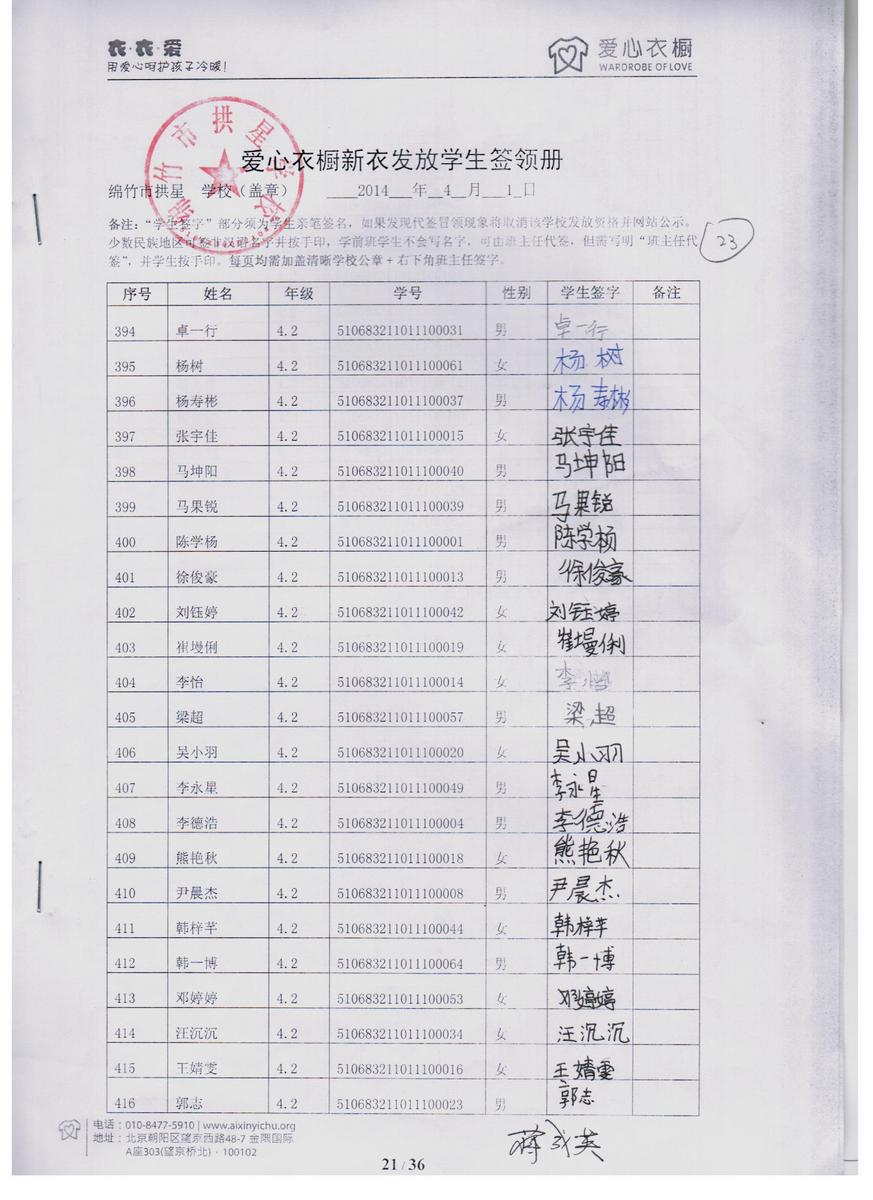 衣·衣·爱
用爱心呵护孩子冷暖!
爱心衣橱
WARDROBE OF LOVE
绵竹市拱星学校
爱心衣橱新衣发放学生签领册
绵竹市拱星 学校(盖章) ____2014___年__4__月___1_日
备注:“学生签字”部分须为学生亲笔签名,如果发现代签冒领现象将取消该学校发放资格并网站公示。
少数民族地区可签非汉语名字并按手印,学前班学生不会写名字,可由班主任代签,但需写明“班主任代
签”,并学生按手印。每页均需加盖清晰学校公章+右下角班主任签字。
23
序号 姓名 年级 学号 性别 学生签字 备注
394 卓一行 4.2 510683211011100031 男 卓一行
395 杨树 4.2 510683211011100061 女 杨树
396 杨寿彬 4.2 510683211011100037 男 杨寿彬
397 张宇佳 4.2 510683211011100015 女 张宇佳
398 马坤阳 4.2 510683211011100040 男 马坤阳
399 马果锐 4.2 510683211011100039 男 马果锐
400 陈学杨 4.2 510683211011100001 男 陈学杨
401 徐俊豪 4.2 510683211011100013 男 徐俊豪
402 刘钰婷 4.2 510683211011100042 女 刘钰婷
403 崔墁俐 4.2 510683211011100019 女 崔墁俐
404 李怡 4.2 510683211011100014 女 李怡
405 梁超 4.2 510683211011100057 男 梁超
406 吴小羽 4.2 510683211011100020 女 吴小羽
407 李永星 4.2 510683211011100049 男 李永星
408 李德浩 4.2 510683211011100004 男 李德浩
409 熊艳秋 4.2 510683211011100018 女 熊艳秋
410 尹晨杰 4.2 510683211011100008 男 尹晨杰
411 韩梓芊 4.2 510683211011100044 女 韩梓芊
412 韩一博 4.2 510683211011100064 男 韩一博
413 邓婷婷 4.2 510683211011100053 女 邓婷婷
414 汪沉沉 4.2 510683211011100034 女 汪沉沉
415 王婧雯 4.2 510683211011100016 女 王婧雯
416 郭志 4.2 510683211011100023 男 郭志
电话:010-8477-5910 | www.aixinyichu.org
地址:北京朝阳区望京西路48-7 金隅国际
A座303(望京桥北)·100102
蒋成英
21 / 36